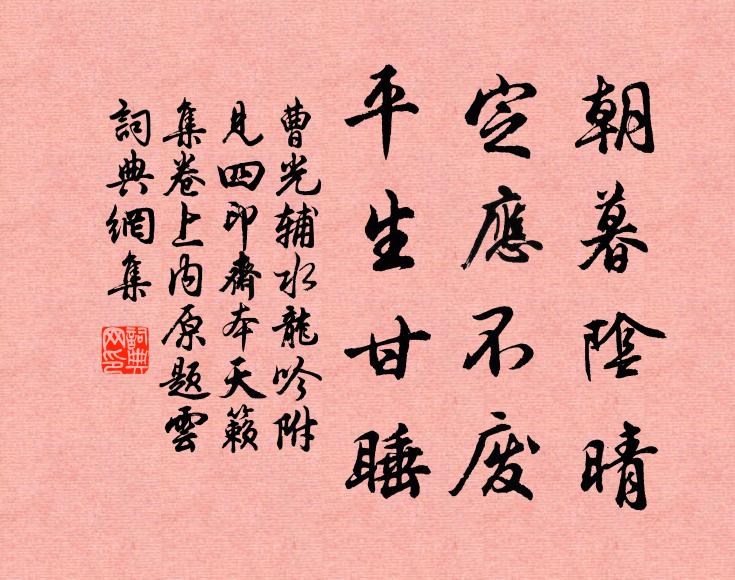 朝暮陰晴
定應不廢
平生甘睡
曹光辅水龍吟附
見四印齋本天籟
集卷上内原題雲
詞典網集
詞典网印